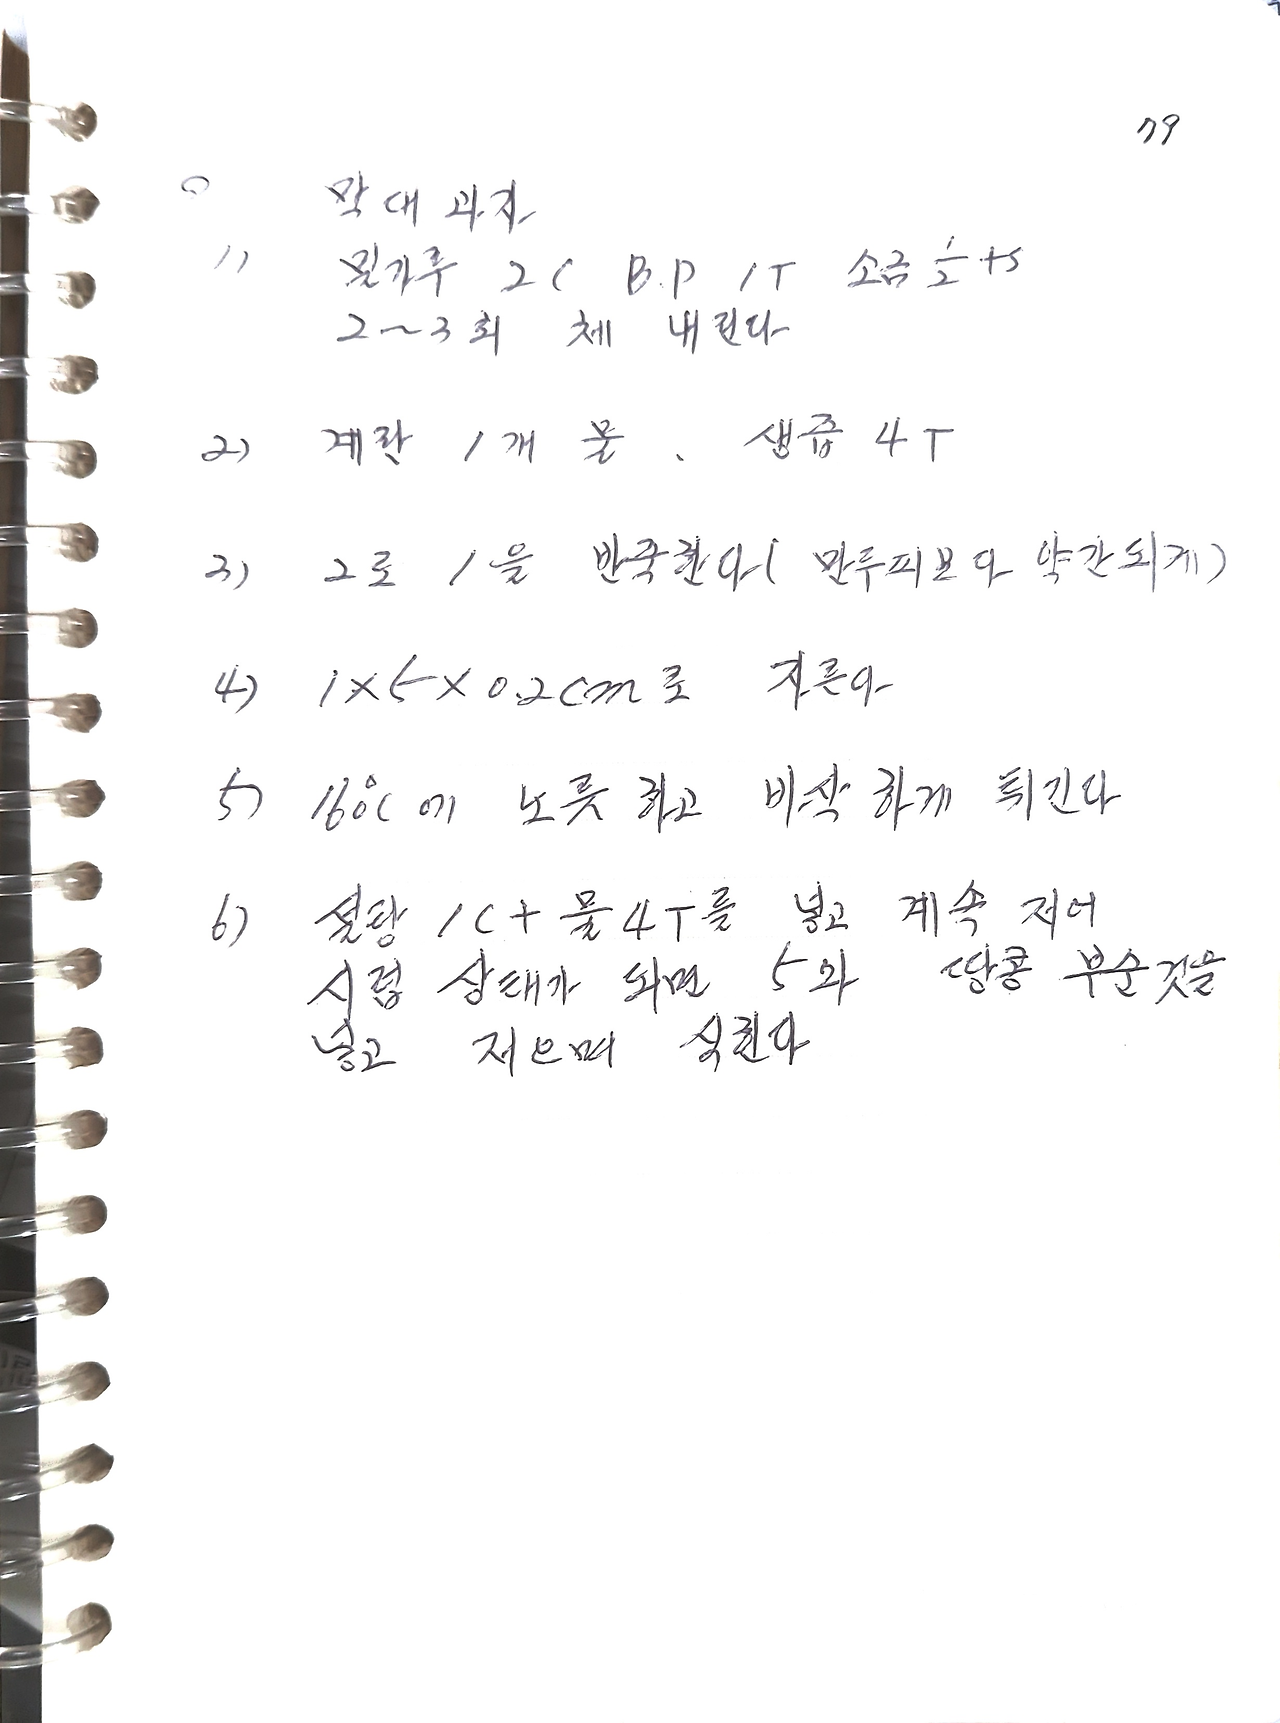 79
○ 막대 과자
1) 밀가루 2C B.P 1T 소금 1/2 ts
2~3회 체 내린다
2) 계란 1개 물 . 생즙 4T
3) 2로 1을 반죽한다( 만두피보다 약간되게)
4) 1×5×0.2cm로 자른다
5) 160℃에 노릇하고 바삭하게 튀긴다
6) 설탕 1C+물4T를 넣고 계속 저어
시럽 상태가 되면 5와 땅콩 부순것을
넣고 저으며 식힌다